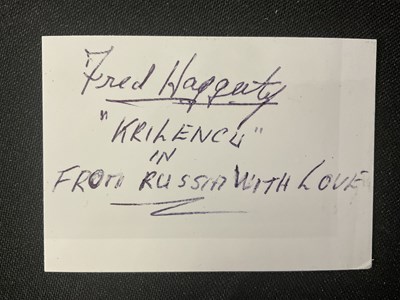 Fred Haggerty
"KRILENCU"
IN
FROM RUSSIA WITH LOVE